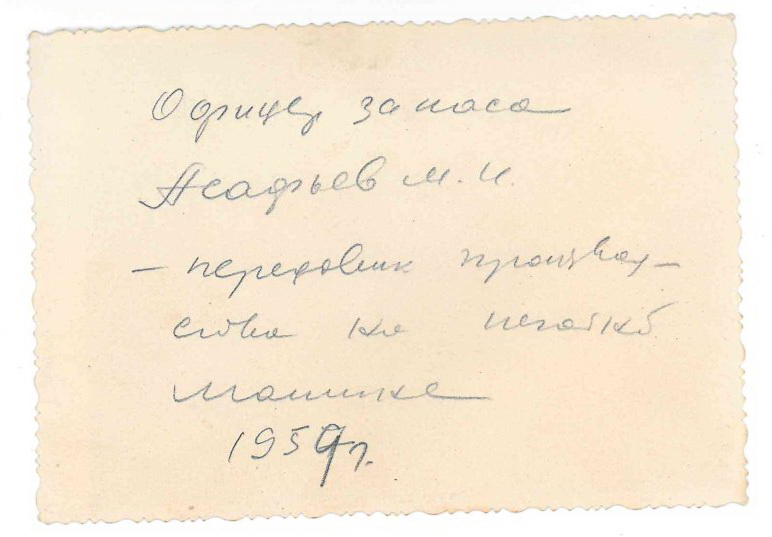 Офицер запаса
Асафьев М. И.
– передовик производ–
ства на
машинке
1959 г.